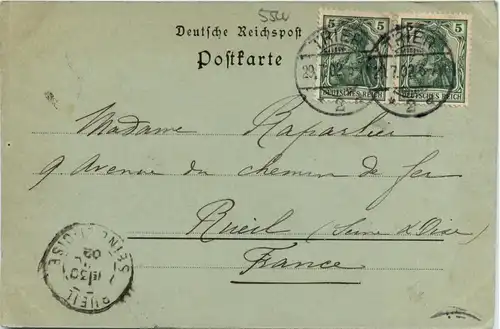 Deutsche Reichspost
Postkarte
5 5
5 5
TRIER TRIER
2 2
DEUTSCHES REICH DEUTSCHES REICH
Madame
9 Avenue du chemin de fer
Rueil (Seine & Oise)
France
RUEIL
SEINE-ET-OISE